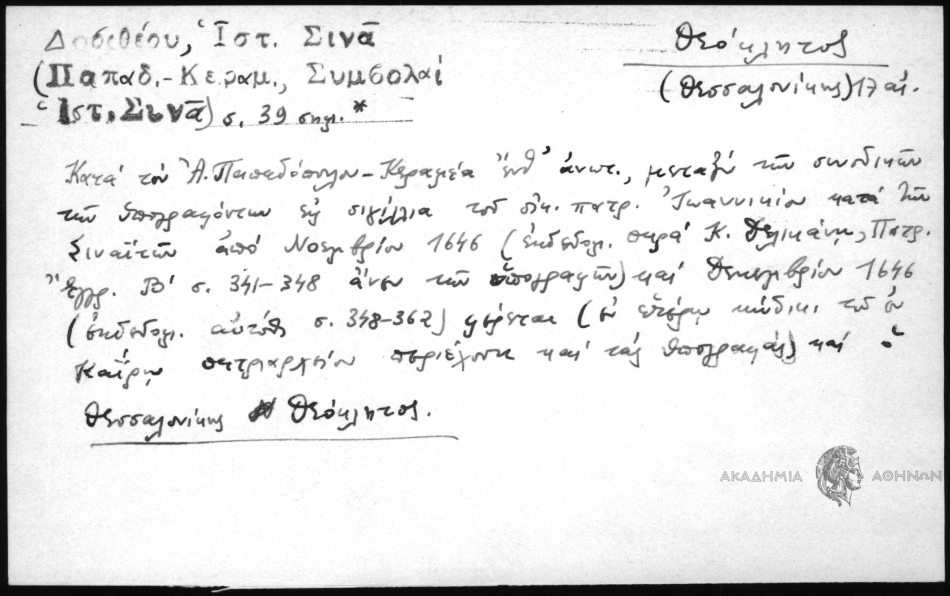 Δοσιθέου, Ἱστ. Σινᾶ
(Παπαδ.-Κεραμ., Συμβολαί
Ἱστ. Σινᾶ) σ. 39 σημ. *
Θεόκλητος
(Θεσσαλονίκης) 17 αἰ.
Κατά τόν Ἀ. Παπαδόπουλον-Κεραμέα ἔνθ' ἀνωτ., μεταξύ τῶν συνοδικῶν
τῶν ὑπογραψάντων εἰς σιγίλλια τοῦ οἰκ. πατρ. Ἰωαννικίου κατά τῶν
Σιναϊτῶν ἀπό Νοεμβρίου 1646 (ἐκδεδομ. παρά Κ. Δελικάνῃ, Πατρ.
Ἔγγρ. Β' σ. 341-348 ἄνευ τῶν ὑπογραφῶν) καί Δεκεμβρίου 1646
(ἐκδεδομ. αὐτόθι σ. 348-362) φέρεται (ἐν ἑτέρῳ κώδικι τοῦ ἐν
Καΐρῳ πατριαρχείου περιέχοντι καί τάς ὑπογραφάς) καί ὁ
Θεσσαλονίκης Θεόκλητος.
ΑΚΑΔΗΜΙΑ ΑΘΗΝΩΝ